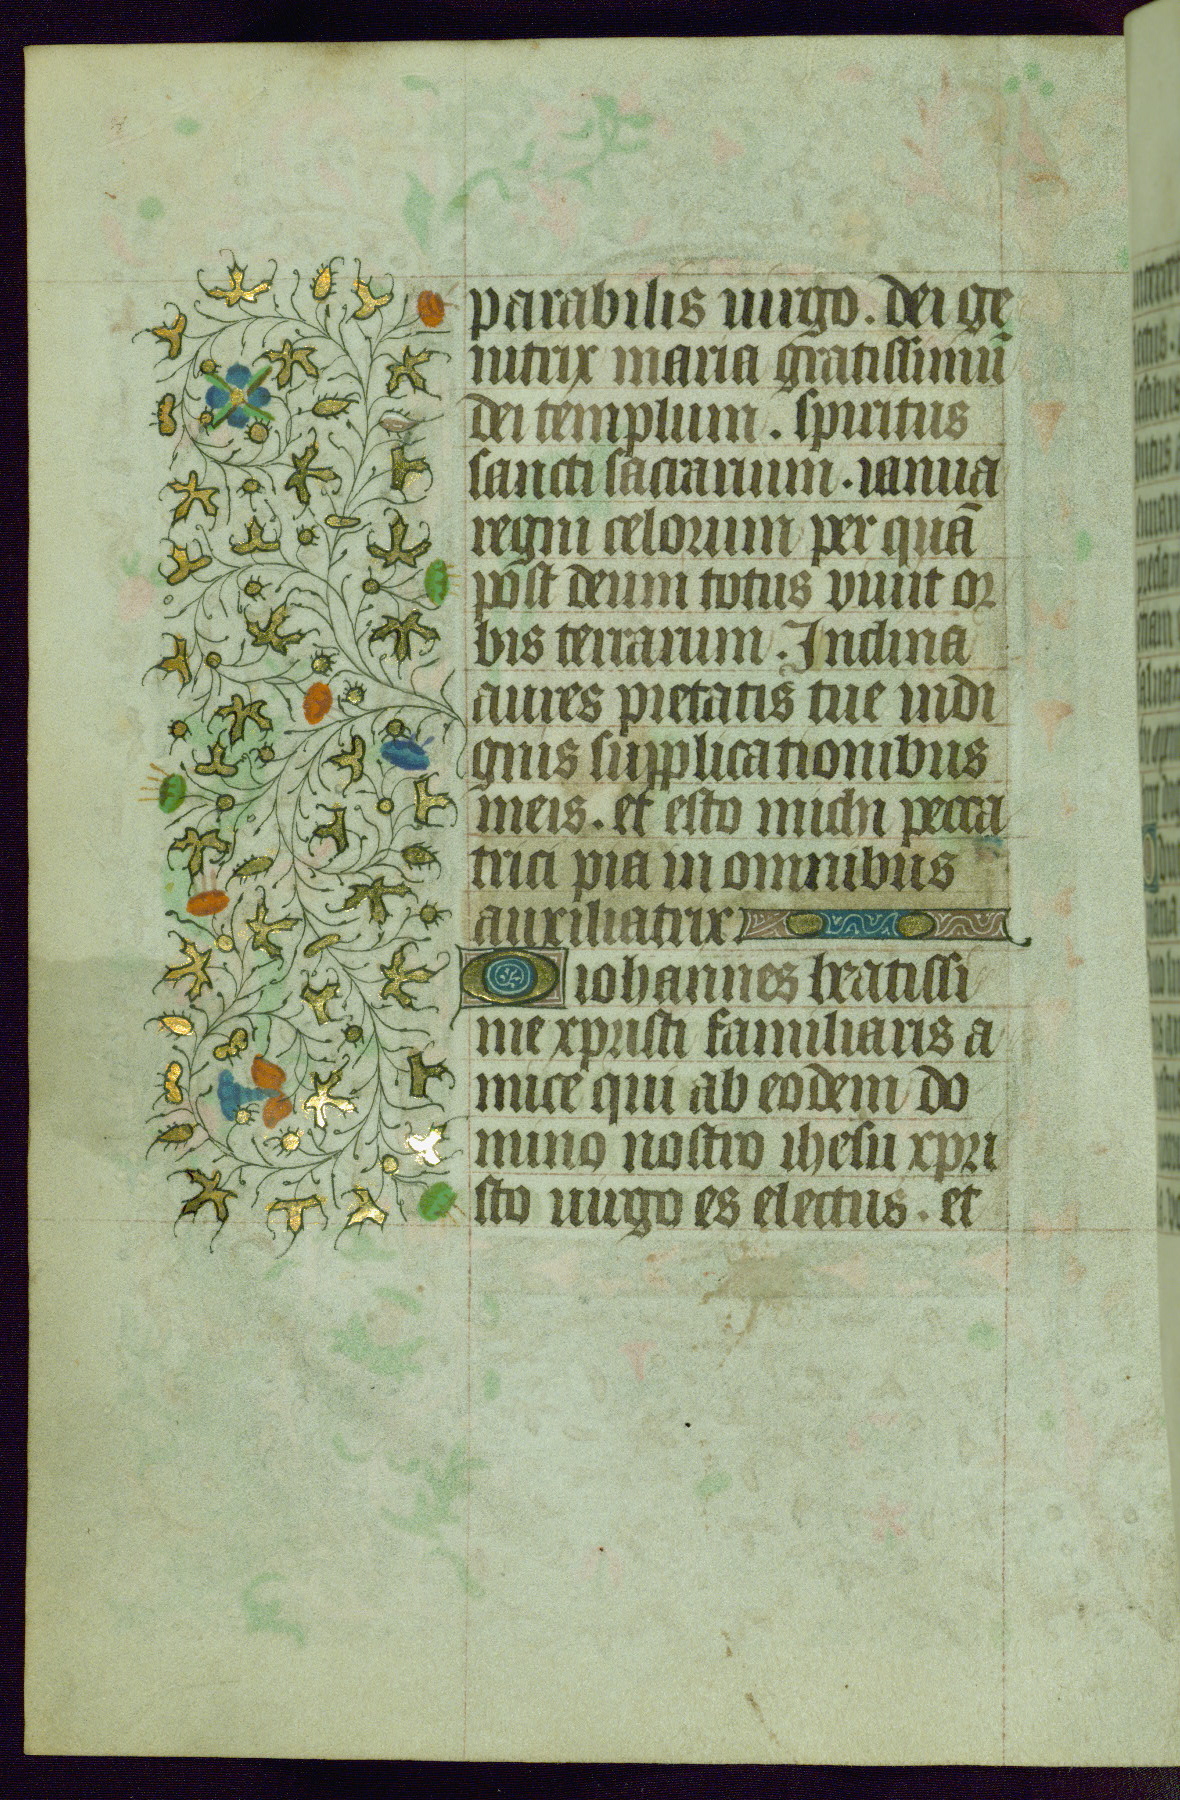 parabilis uirgo. dei ge
nitrix maria gratissimū
dei templum. spiritus
sancti sacrarium. ianua
regni celorum per quā
post deum totus viuit or
bis terrarum. Inclina
aures pietatis tue indi
gnis supplicationibus
meis. et esto michi pecca
trici pia in omnibus
auxiliatrix.
O iohannes beatissi
me xpristi familiaris a
mice qui ab eodem do
mino nostro ihesu xpri
sto uirgo es electus. et